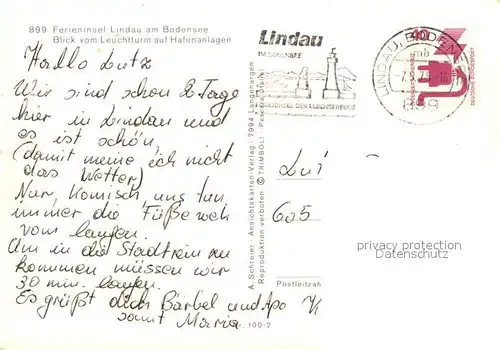 899 Ferieninsel Lindau am Bodensee
Blick vom Leuchtturm auf Hafenanlagen
Hallo Lutz
Wir sind schon 2 Tage
hier in Lindau und
es ist schön
(damit meine ich nicht
das Wetter)
Nur komisch uns tun
immer die Füße weh
vom laufen.
Um in die Stadt rein zu
kommen müssen wir
30 min. laufen.
Es grüßt dich Bärbel und Apo
samt Maria
100-2
A. Schreier - Ansichtskarten-Verlag - 7994 Langenargen
Reproduktion verboten © TRIMBOLI
Lindau
IM BODENSEE
LINDAU, BODENSEE
899
40
Lui
605
privacy protection
Datenschutz
Postleitzahl